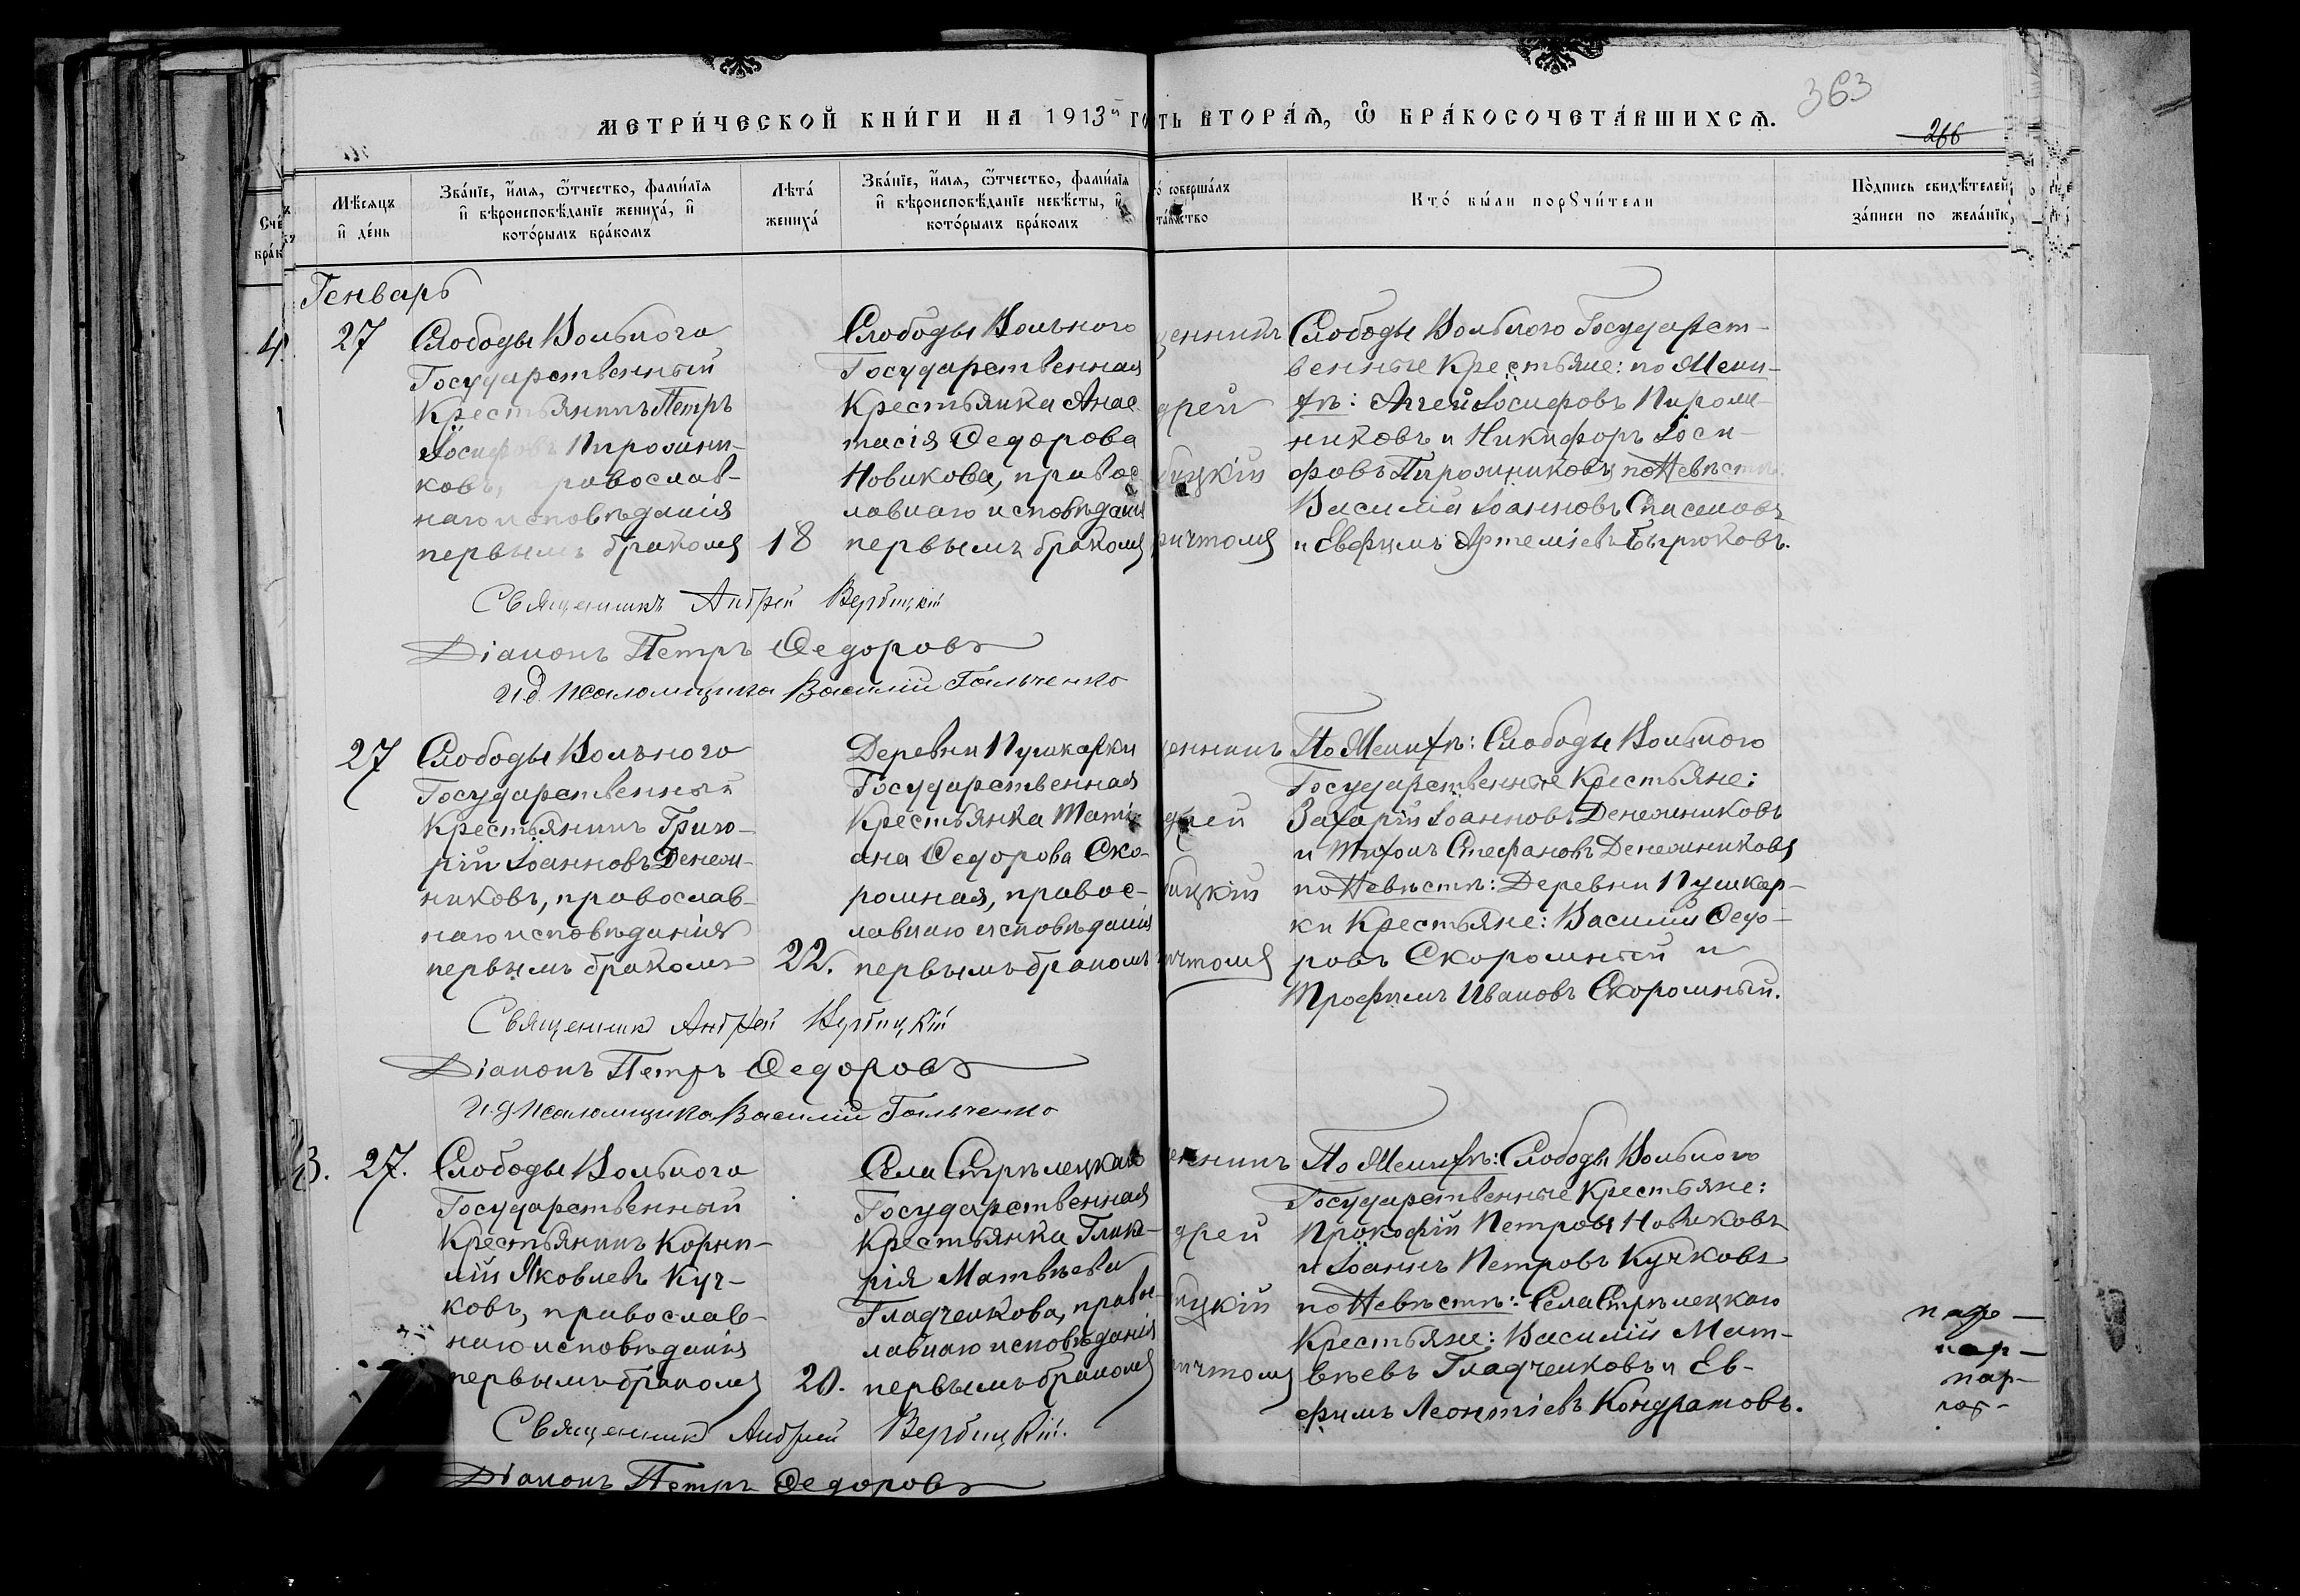 363
МЕТРИ́ЧЕСКОЙ КНИ́ГИ НА 1913й ГО ТЬ ВТОРА́Ѧ, Ѡ БРА́КОСОЧЕТА́ВШИХСѦ.
266
Счё
бра́к
Мѣ́сяцъ и҆ де́нь
Зва́нїе, и҆́мѧ, ѻ҆́тчество, фами́лїѧ и҆ вѣроисповѣ́данїе жениха́, и҆ кото́рымъ бра́комъ
Лѣта́ жениха́
Зва́нїе, и҆́мѧ, ѻ҆́тчество, фами́лїѧ и҆ вѣроисповѣ́данїе невѣ́сты, и҆ кото́рымъ бра́комъ
о́ соверша́лъ
та́инство
Кто́ бы́ли порꙋчи́тели
По́дпись свидѣ́телей
за́писи по жела́нїю
Генварь
4.
27
Слободы Вольного
Государственный
Крестьянинъ Петръ
Іосифовъ Пирожни-
ковъ, православ-
наго исповѣданія
первымъ бракомъ
18
Слободы Вольного
Государственная
Крестьянка Анас
тасія Ѳедорова
Новикова, правос
лавнаго исповѣданія
первымъ бракомъ
щенникъ
дрей
бицкій
ричтомъ
Слободы Вольного Государст-
венные Крестьяне: по Жени-
хѣ: Аггей Іосифовъ Пирож-
никовъ и Никифоръ Іоси-
фовъ Пирожниковъ, по Невѣстѣ
Василій Іоанновъ
и Евфимъ Артеміевъ Бирюковъ.
Священникъ Андрей Вербицкій
Діаконъ Петръ Ѳедоровъ
И.д. Псаломщика Василій Гальченко
27
Слободы Вольного
Государственный
Крестьянинъ Григо-
рій Іоанновъ Денеж-
никовъ, православ-
наго исповѣданія
первымъ бракомъ
22.
Деревни Пушкарки
Государственная
Крестьянка Таті-
ана Ѳедорова Ско-
ромная, правос-
лавнаго исповѣданія
первымъ бракомъ
щенникъ
дрей
бицкій
ичтомъ
По Женихѣ: Слободы Вольного
Государственные Крестьяне:
Захарій Іоанновъ Денежниковъ
и Тихонъ Стефановъ Денежниковъ
по Невѣстѣ: Деревни Пушкар-
ки Крестьяне: Василій Ѳедо-
ровъ Скоромный и
Трофимъ Ивановъ Скоромный.
Священникъ Андрей Вербицкій
Діаконъ Петръ Ѳедоровъ
И.д. Псаломщика Василій Гальченко
3.
27.
Слободы Вольного
Государственный
Крестьянинъ Корни-
лій Яковлевъ Куч-
ковъ, православ-
наго исповѣданія
первымъ бракомъ
20.
Села Стрѣлецкаго
Государственная
Крестьянка Глике-
рія Матвѣева
Гладченкова, правос-
лавнаго исповѣданія
первымъ бракомъ
щенникъ
дрей
ицкій
ичтомъ
По Женихѣ: Слободы Вольного
Государственные Крестьяне:
Прокофій Петровъ Новиковъ
и Іоаннъ Петровъ Кучковъ
по Невѣстѣ: Села Стрѣлецкаго
Крестьяне: Василій Мат-
вѣевъ Гладченковъ и Ев-
фимъ Леонтіевъ Кондратовъ.
Священникъ Андрей Вербицкій.
Діаконъ Петръ Ѳедоровъ